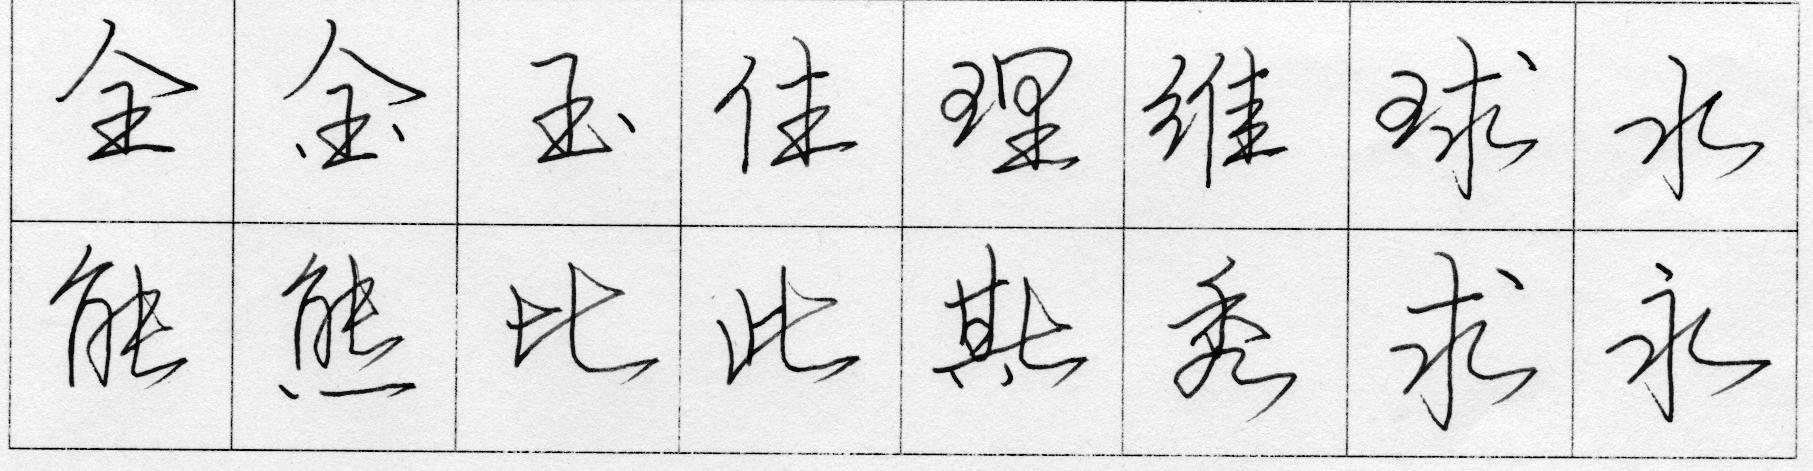 全金玉佳理维球水
能熊比此秀求永